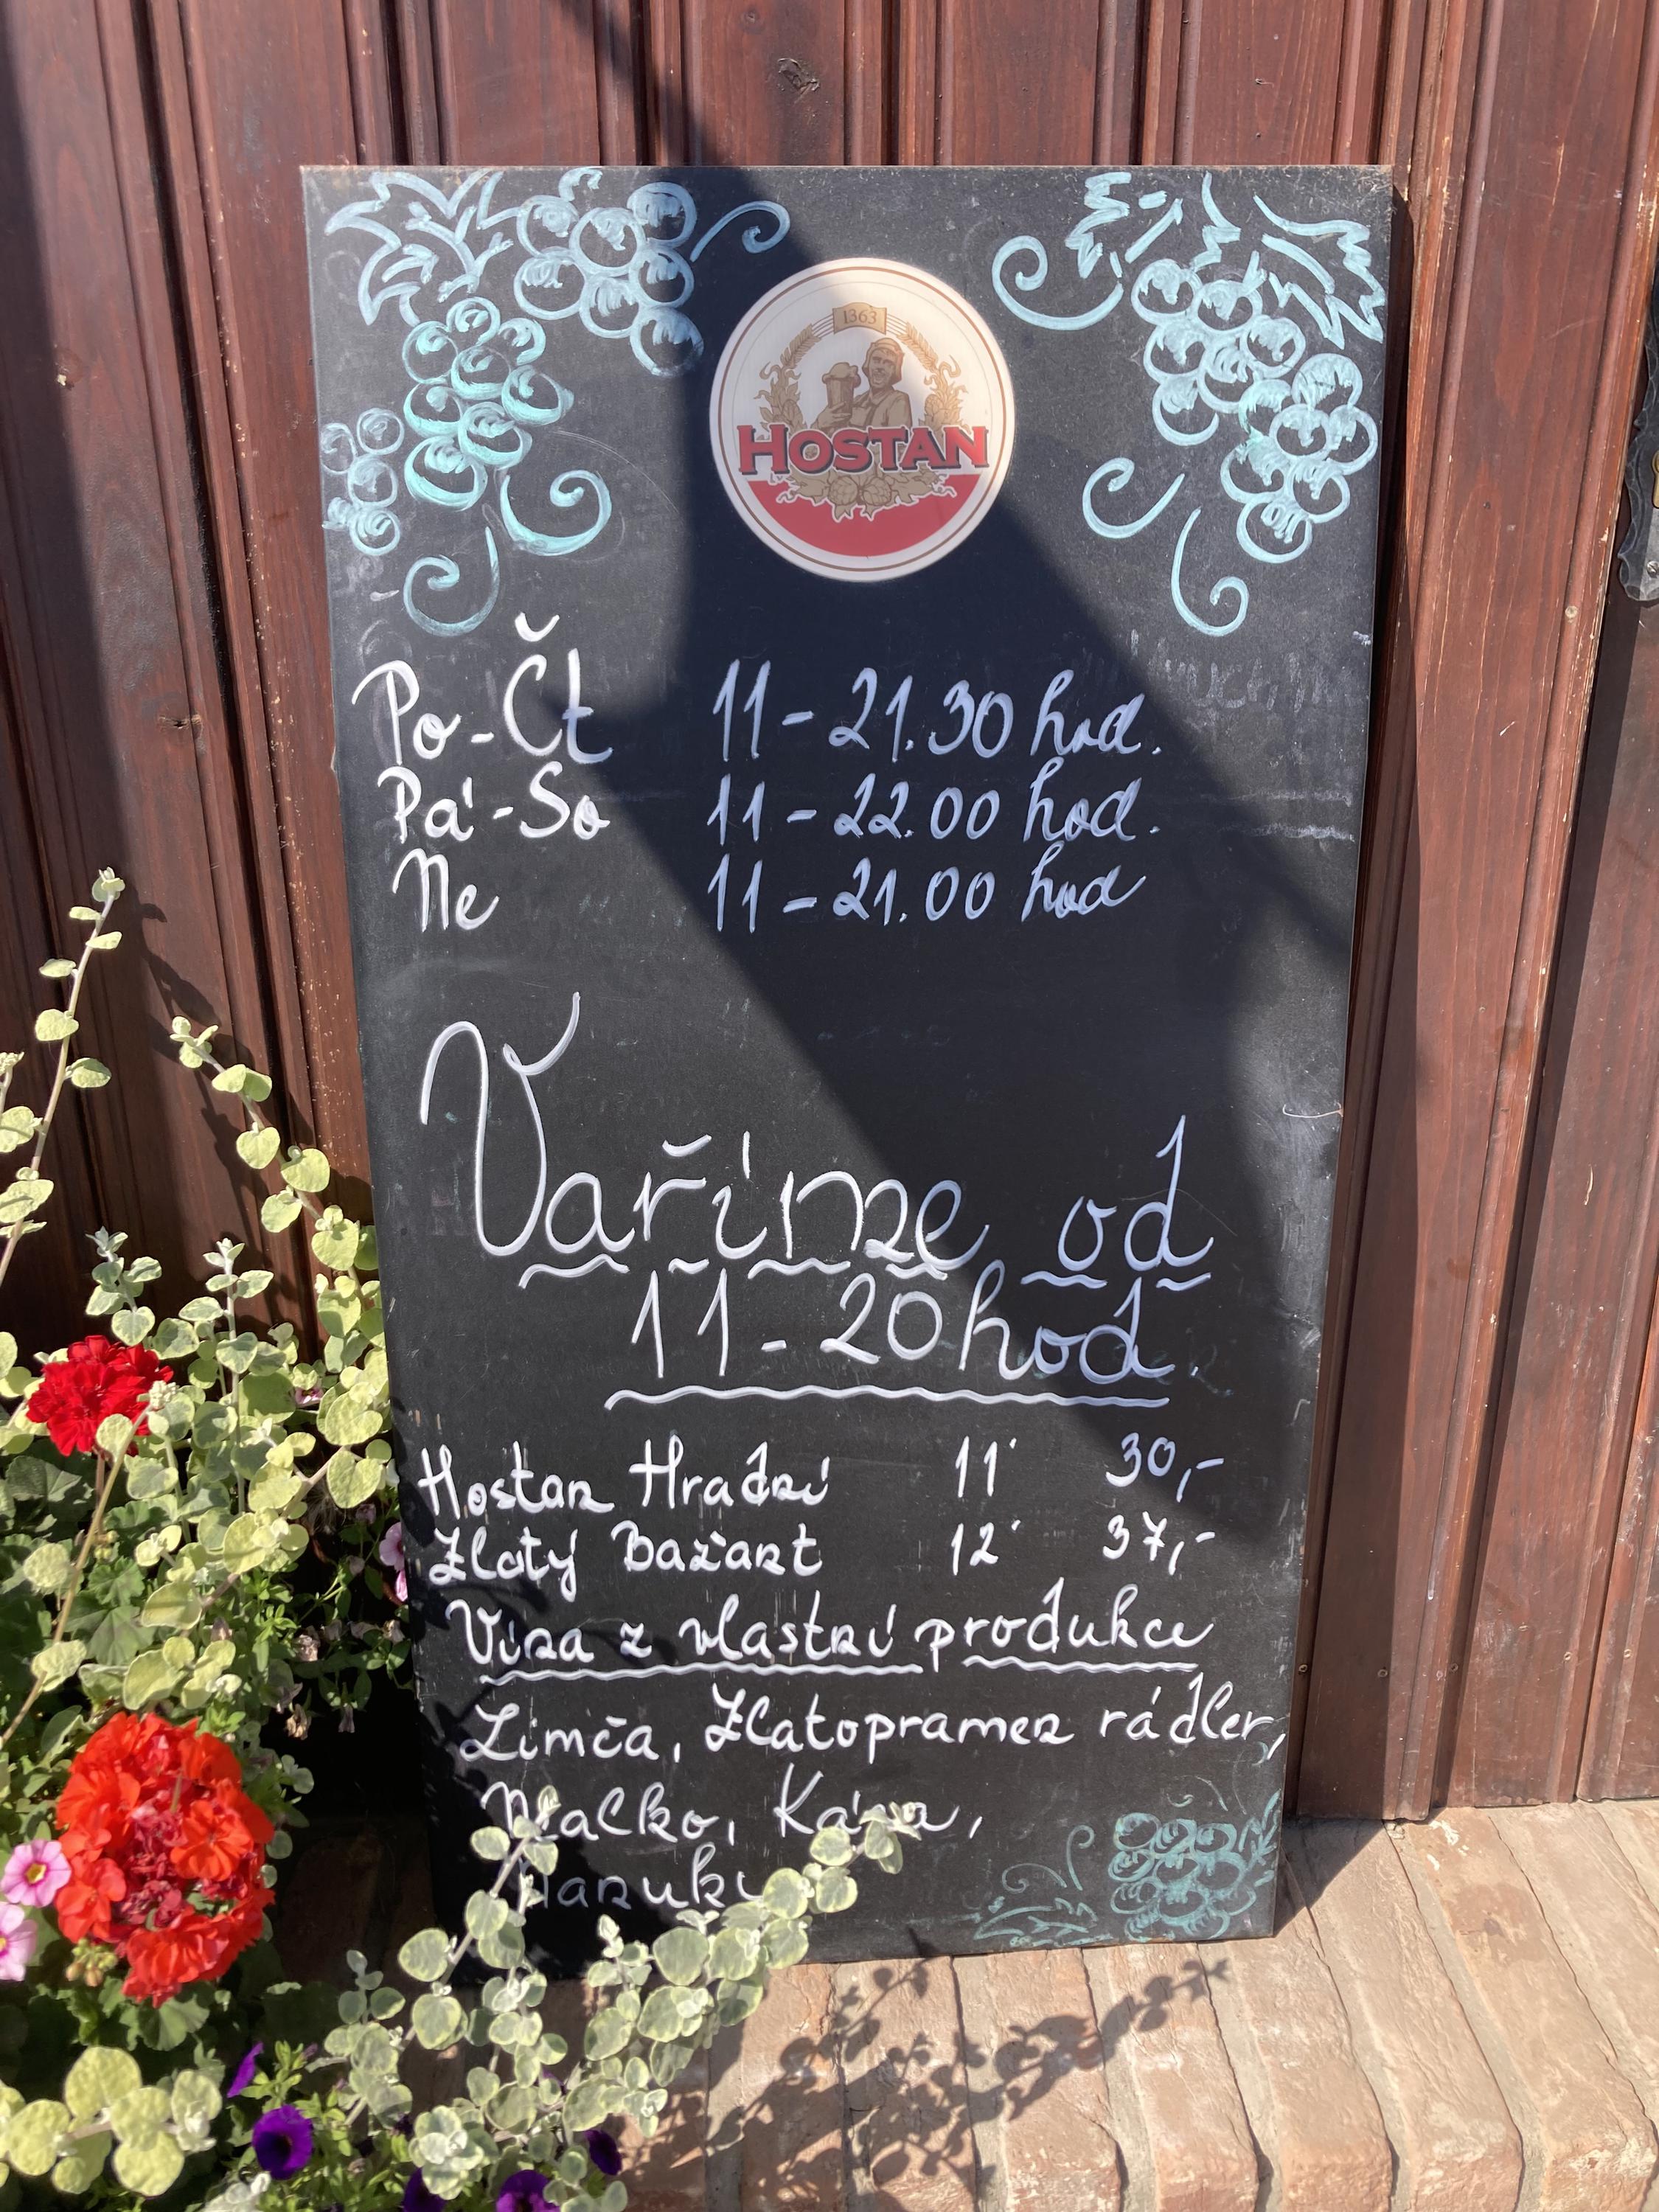 1363
HOSTAN
Po-Čt 11 - 21.30 hod.
Pá-So 11 - 22.00 hod.
Ne 11 - 21.00 hod
Vaříme od
11 - 20 hod.
Hostan Hradní 11° 30,-
Zlatý Bažant 12° 37,-
Vína z vlastní produkce
Limča, Zlatopramen rádler,
Malko, Káva,
Nanuky